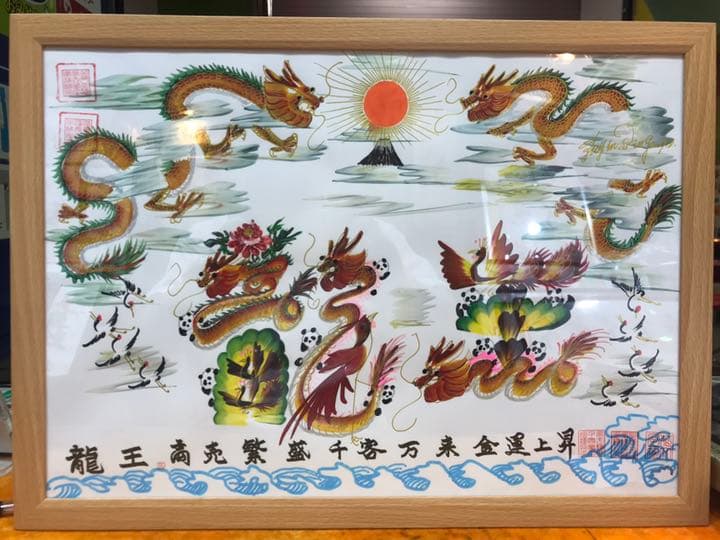 龍王
龍王 商売繁盛千客万来金運上昇